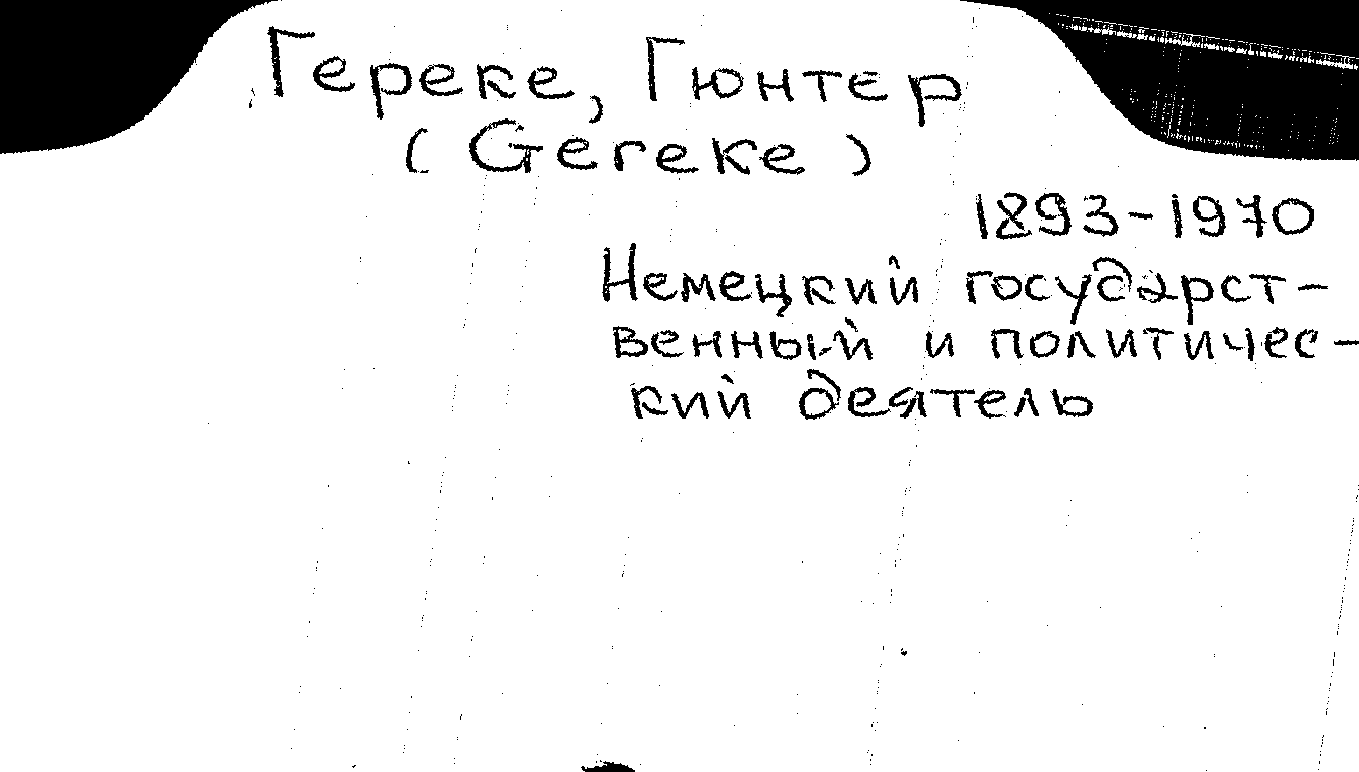 Гереке, Гюнтер
( Gereke )
1893-1970
Немецкий государст-
венный и политичес-
кий деятель